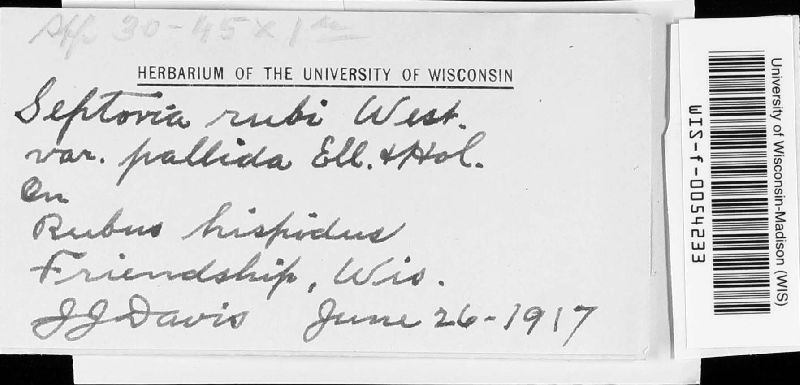 30-45 x 1
HERBARIUM OF THE UNIVERSITY OF WISCONSIN
Septoria rubi West.
var. pallida Ell. & Hol.
On
Rubus hispidus
Friendship, Wis.
JJ Davis June 26-1917
University of Wisconsin-Madison (WIS)
WIS-f-0054233